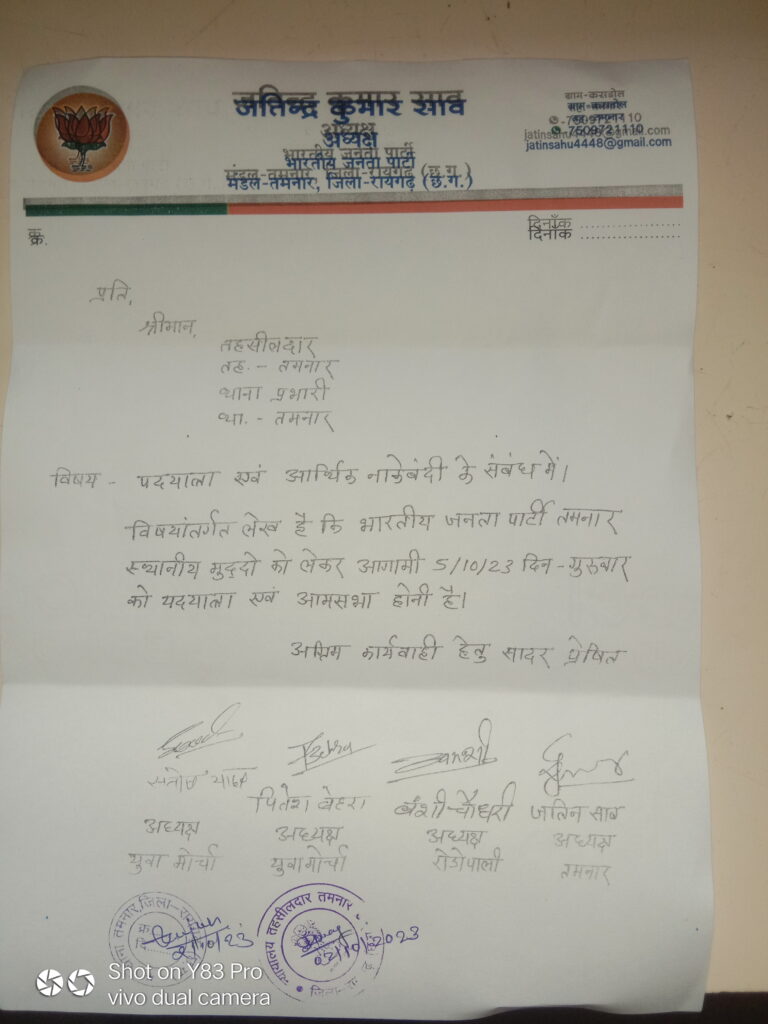 जतिन्द्र कुमार साव
अध्यक्ष
भारतीय जनता पार्टी
मंडल-तमनार, जिला-रायगढ़ (छ.ग.)
ग्राम-कसडोल
7509721110
jatinsahu4448@gmail.com
क्र.
दिनाँक ..................
प्रति,
श्रीमान,
तहसीलदार
तह. - तमनार
थाना प्रभारी
था. - तमनार
विषय - पदयात्रा एवं आर्थिक नाकेबंदी के संबंध में।
विषयांतर्गत लेख है कि भारतीय जनता पार्टी तमनार
स्थानीय मुद्दो को लेकर आगामी 5/10/23 दिन - गुरुवार
को पदयात्रा एवं आमसभा होनी है।
अग्रिम कार्यवाही हेतु सादर प्रेषित
पितेश बेहरा
बंशी चौधरी
जतिन साव
अध्यक्ष
अध्यक्ष
अध्यक्ष
अध्यक्ष
युवा मोर्चा
युवा मोर्चा
रोडोपाली
तमनार
थाना तमनार, जिला-
2/10/23
न्यायालय तहसीलदार तमनार
02/10/2023
Shot on Y83 Pro
vivo dual camera